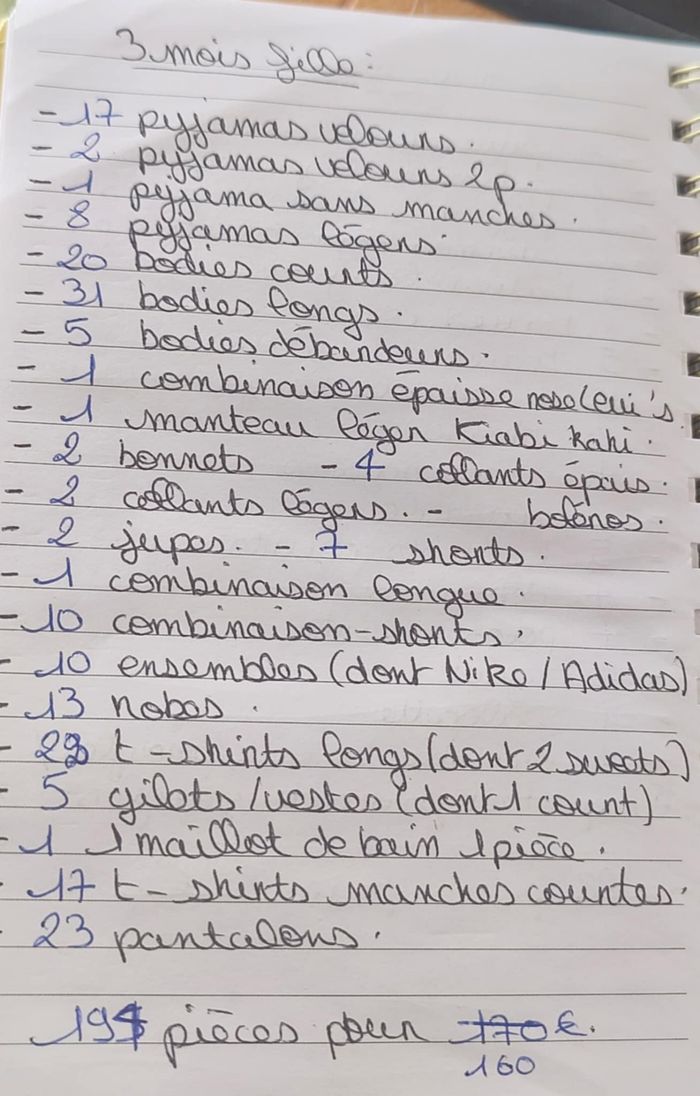 3 mois fille :
- 17 pyjamas velours.
- 2 pyjamas velours 2p.
- 1 pyjama sans manches.
- 8 pyjamas légers.
- 20 bodies courts.
- 31 bodies longs.
- 5 bodies débardeurs.
- 1 combinaison épaisse rose levi's.
- 1 manteau léger Kiabi kaki.
- 2 bonnets - 4 collants épais.
- 2 collants légers. - boléros.
- 2 jupes. - 7 shorts.
- 1 combinaison longue.
- 10 combinaison-shorts.
- 10 ensembles (dont Nike / Adidas)
- 13 robes.
- t-shirts longs (dont 2 sweats)
- 5 gilets / vestes (dont 1 court)
- 1 1 maillot de bain 1 pièce.
- 17 t-shirts manches courtes.
- 23 pantalons.
pièces pour 170 €.
160